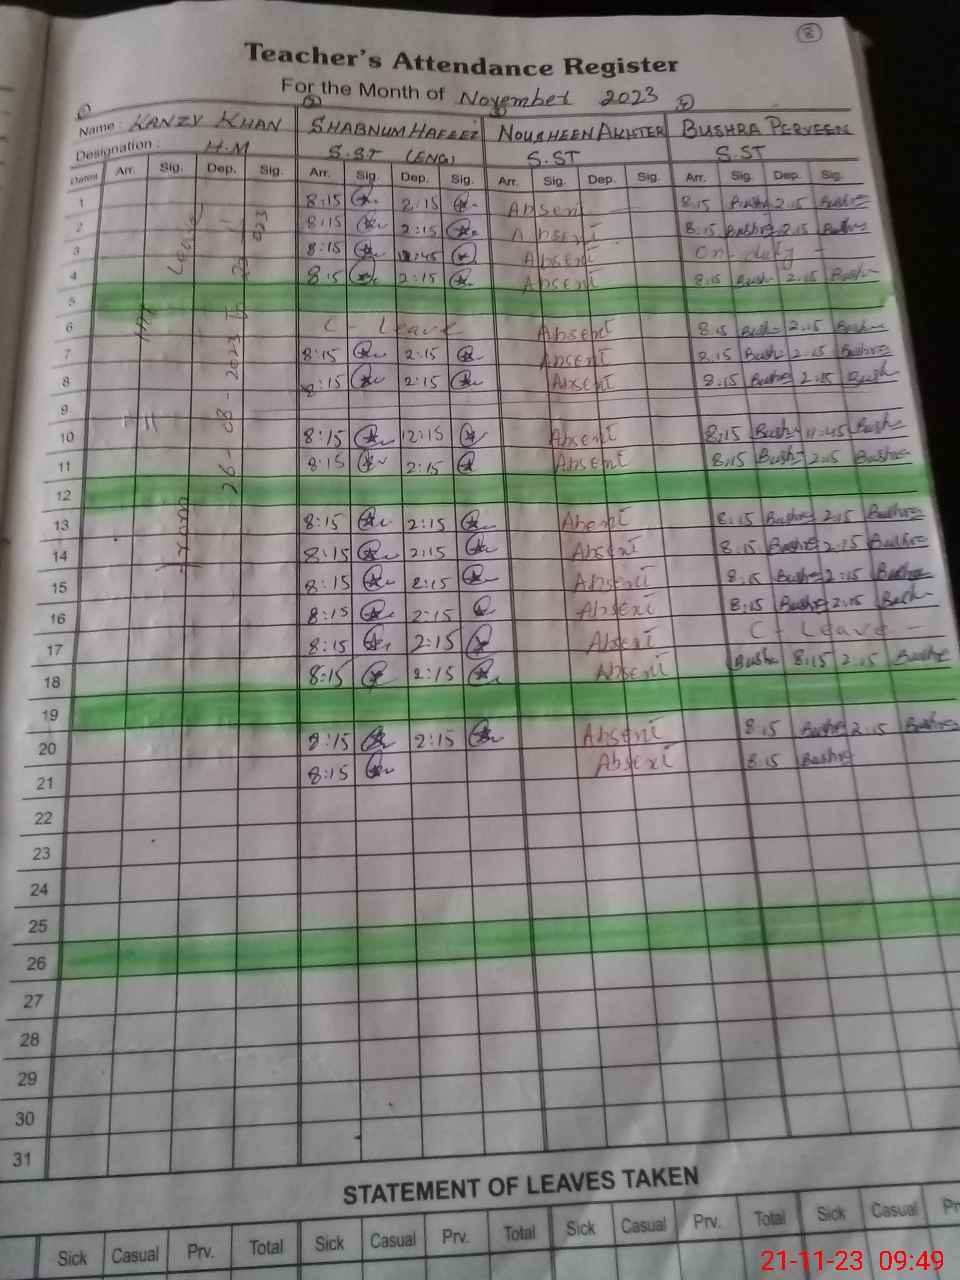 8
Teacher's Attendance Register
For the Month of November 2023
Name : KANZV KHAN SHABNUM HAFEEZ NOUSHEEN AKHTER BUSHRA PERVEEN
Designation : H.M S.ST (ENG) S.ST S.ST
Dates Arr. Sig. Dep. Sig. Arr. Sig. Dep. Sig. Arr. Sig. Dep. Sig. Arr. Sig. Dep. Sig.
1 8:15 2:15 Absent 8:15 Bushre 2:15 Bushre
2 8:15 2:15 Absent 8:15 Bushre 2:15 Bushre
3 8:15 Absent On duty
4 8:15 2:15 Absent 8:15 Bush 2:15 Bush
5
6 C - Leave Absent 8:15 Bush 2:15 Bushre
7 8:15 2:15 Absent 8:15 Bush 2:15 Bushre
8 8:15 2:15 Absent 8:15 Bush 2:15 Bush
9
10 8:15 12:15 Absent 8:15 Bush 11:45 Bush
11 8:15 2:15 Absent 8:15 Bush 2:15 Bushre
12
13 8:15 2:15 Absent 8:15 Bushre 2:15 Bushre
14 8:15 2:15 Absent 8:15 Bushre 2:15 Bushre
15 8:15 2:15 Absent 8:15 Bushre 2:15 Bushre
16 8:15 2:15 Absent 8:15 Bushre 2:15 Bush
17 8:15 2:15 Absent C - Leave -
18 8:15 2:15 Absent Bush 8:15 2:15 Bushre
19
20 8:15 2:15 Absent 8:15 Bushre 2:15 Bushre
21 8:15 Absent 8:15 Bushre
22
23
24
25
26
27
28
29
30
31
Leave
From 26-08-2023 To
STATEMENT OF LEAVES TAKEN
Sick Casual Prv. Total Sick Casual Prv. Total Sick Casual Prv. Total Sick Casual
21-11-23 09:49